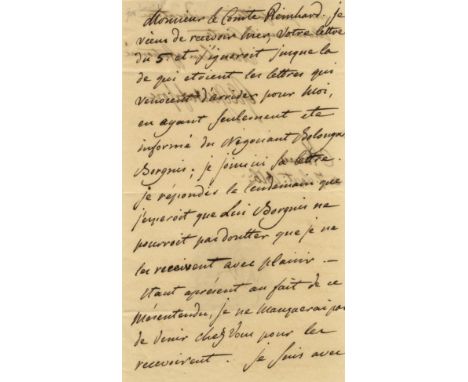 Monsieur le Comte Reinhard. je
viens de recevoir hier, Votre lettre
du 5. et j'ignoroit jusque la
de qui etoient les lettres qui
venoient d'arrider pour Moi,
en ayant seulement ete
informé du Negociant Bologne
Borgnis; je joins ici sa lettre.
je repondés le lendemain que
j'esperoit que Lui Borgnis ne
pourroit pas doutter que je ne
les recoivent avec plaisir —
etant apresent au fait de ce
Mesentendu, je ne Manquerai pas
de Venir chez Vous pour les
recevoirent. je suis avec